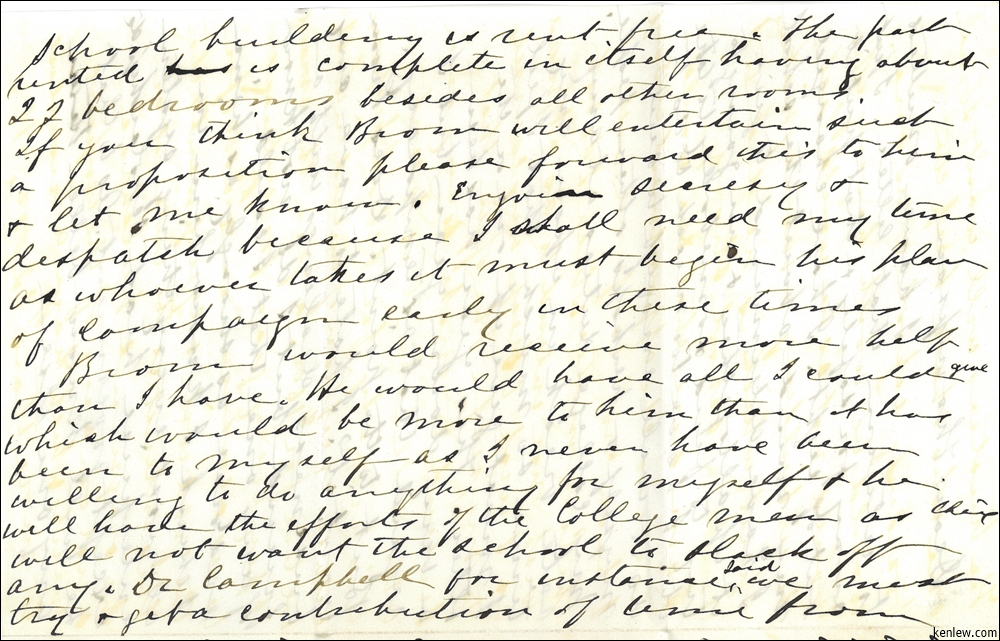 School building is rent free. The part
rented has is complete in itself having about
22 bedrooms besides all other rooms
If you think Brown will entertain such
a proposition please forward this to him
& let me know. Enjoin secresy &
despatch because I shall need my time
as whoever takes it must begin his plan
of campaign early in these times
Brown would receive more help
than I have. He would have all I could give
which would be more to him than it has
been to myself as I never have been
willing to do anything for myself & he
will have the efforts of the College men as they
will not want the school to slack off
any. Dr Campbell for instance, said we must
try & get a contribution of time from
kenlew.com